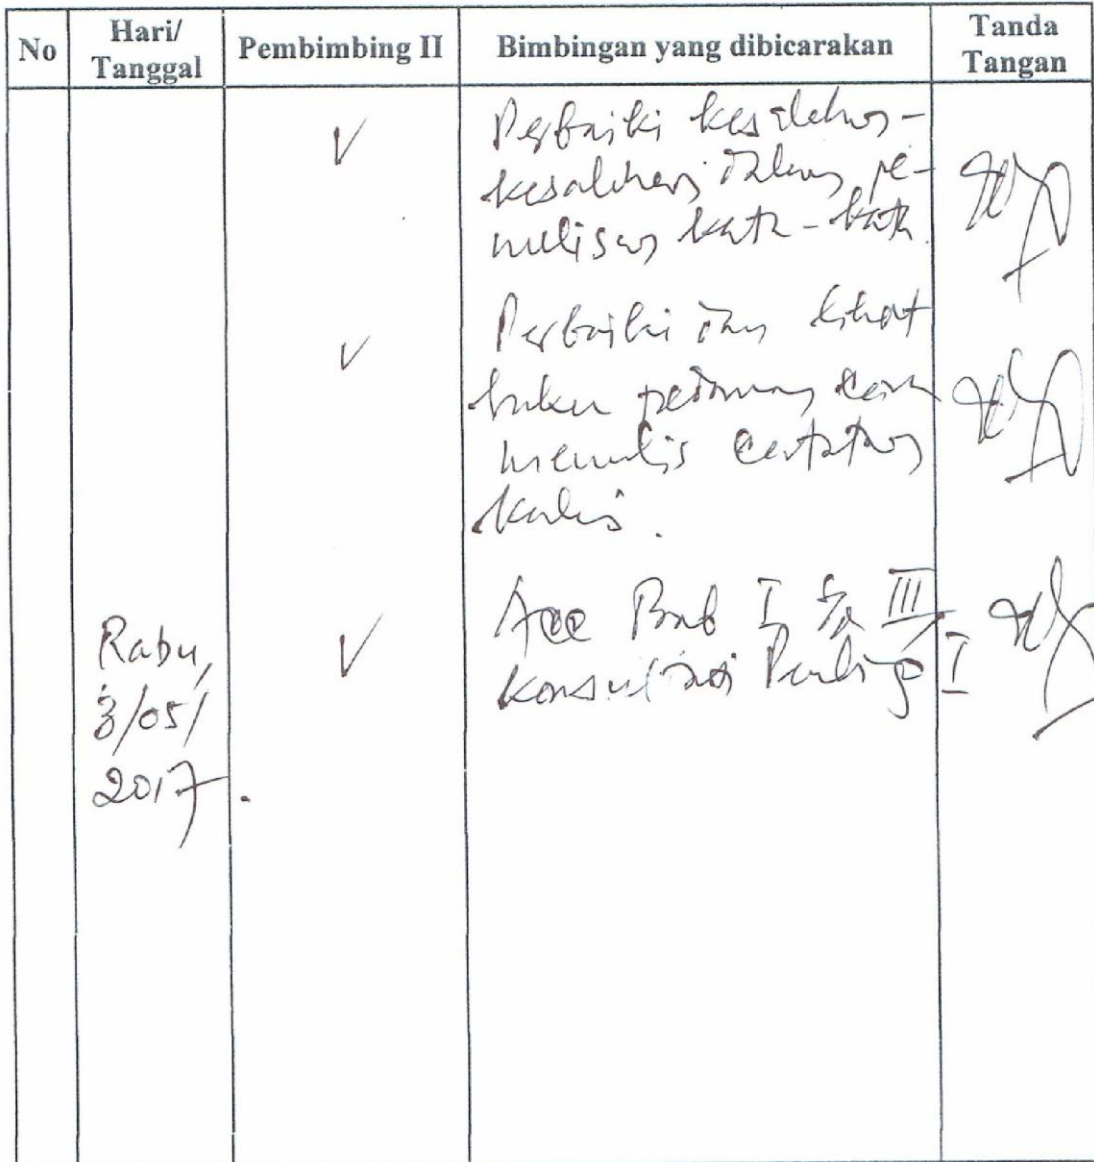 No Hari/ Tanggal Pembimbing II Bimbingan yang dibicarakan Tanda Tangan
√ Perbaiki kesalahan-
kesalahan dalam pe-
nulisan kata-kata.
√ Perbaiki dan lihat
buku pedoman cara
menulis catatan
kaki.
Rabu, √ Acc Bab I s/d III,
3/05/ konsultasi Pembimbing I
2017.